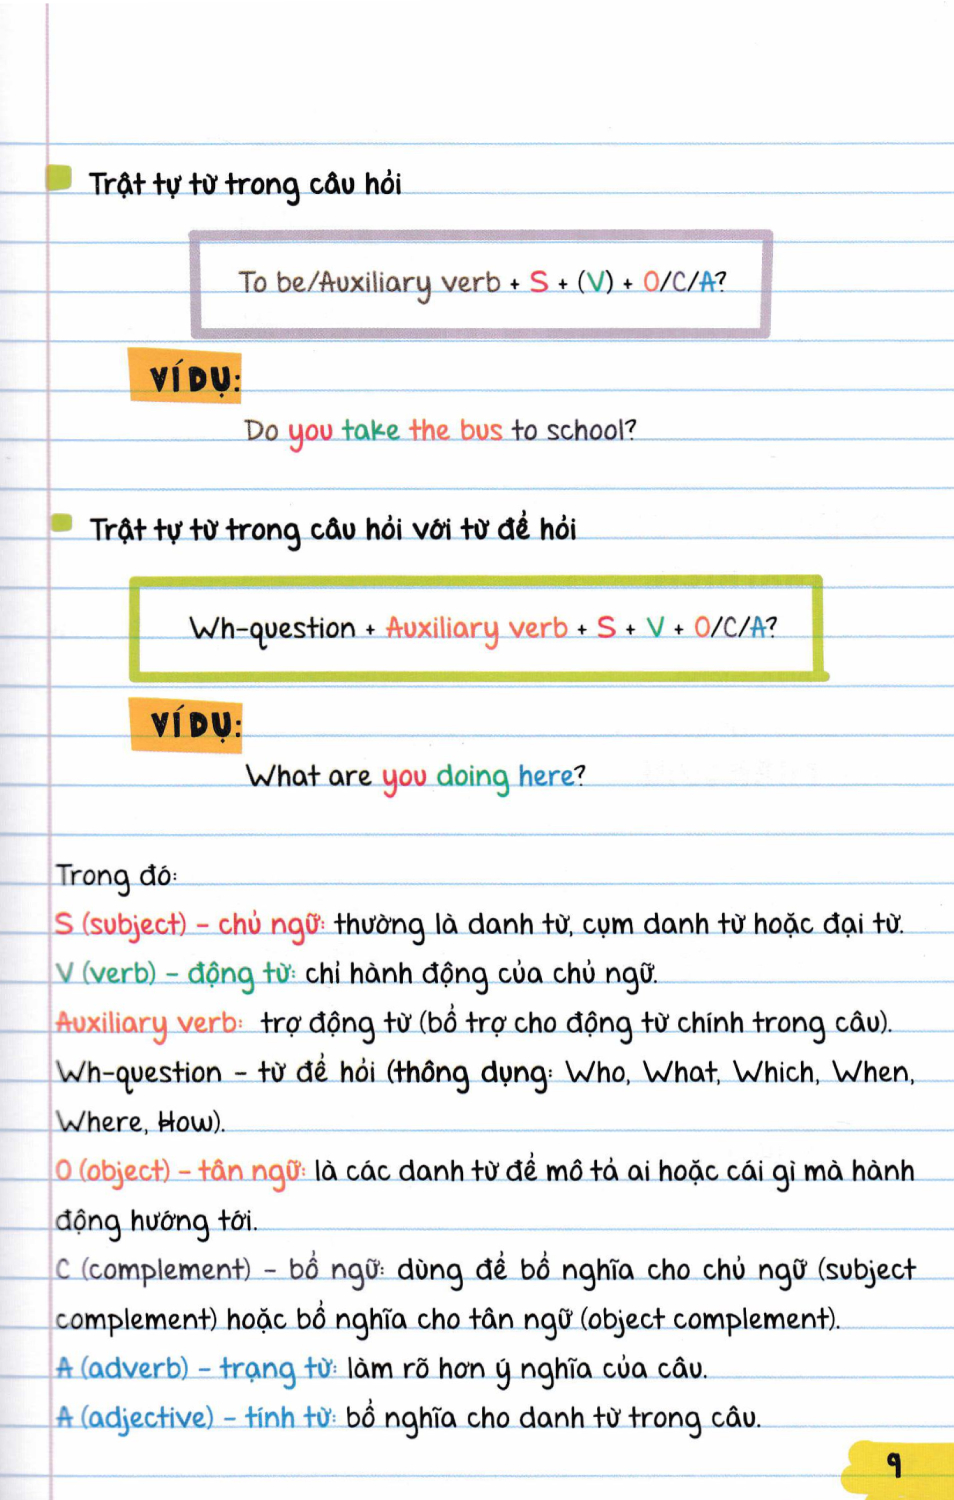 Trật tự từ trong câu hỏi
To be/Auxiliary verb + S + (V) + O/C/A?
VÍ DỤ:
Do you take the bus to school?
Trật tự từ trong câu hỏi với từ để hỏi
Wh-question + Auxiliary verb + S + V + O/C/A?
VÍ DỤ:
What are you doing here?
Trong đó:
S (subject) - chủ ngữ: thường là danh từ, cụm danh từ hoặc đại từ.
V (verb) - động từ: chỉ hành động của chủ ngữ.
Auxiliary verb: trợ động từ (bổ trợ cho động từ chính trong câu).
Wh-question - từ để hỏi (thông dụng: Who, What, Which, When,
Where, How).
O (object) - tân ngữ: là các danh từ để mô tả ai hoặc cái gì mà hành
động hướng tới.
C (complement) - bổ ngữ: dùng để bổ nghĩa cho chủ ngữ (subject
complement) hoặc bổ nghĩa cho tân ngữ (object complement).
A (adverb) - trạng từ: làm rõ hơn ý nghĩa của câu.
A (adjective) - tính từ: bổ nghĩa cho danh từ trong câu.
9